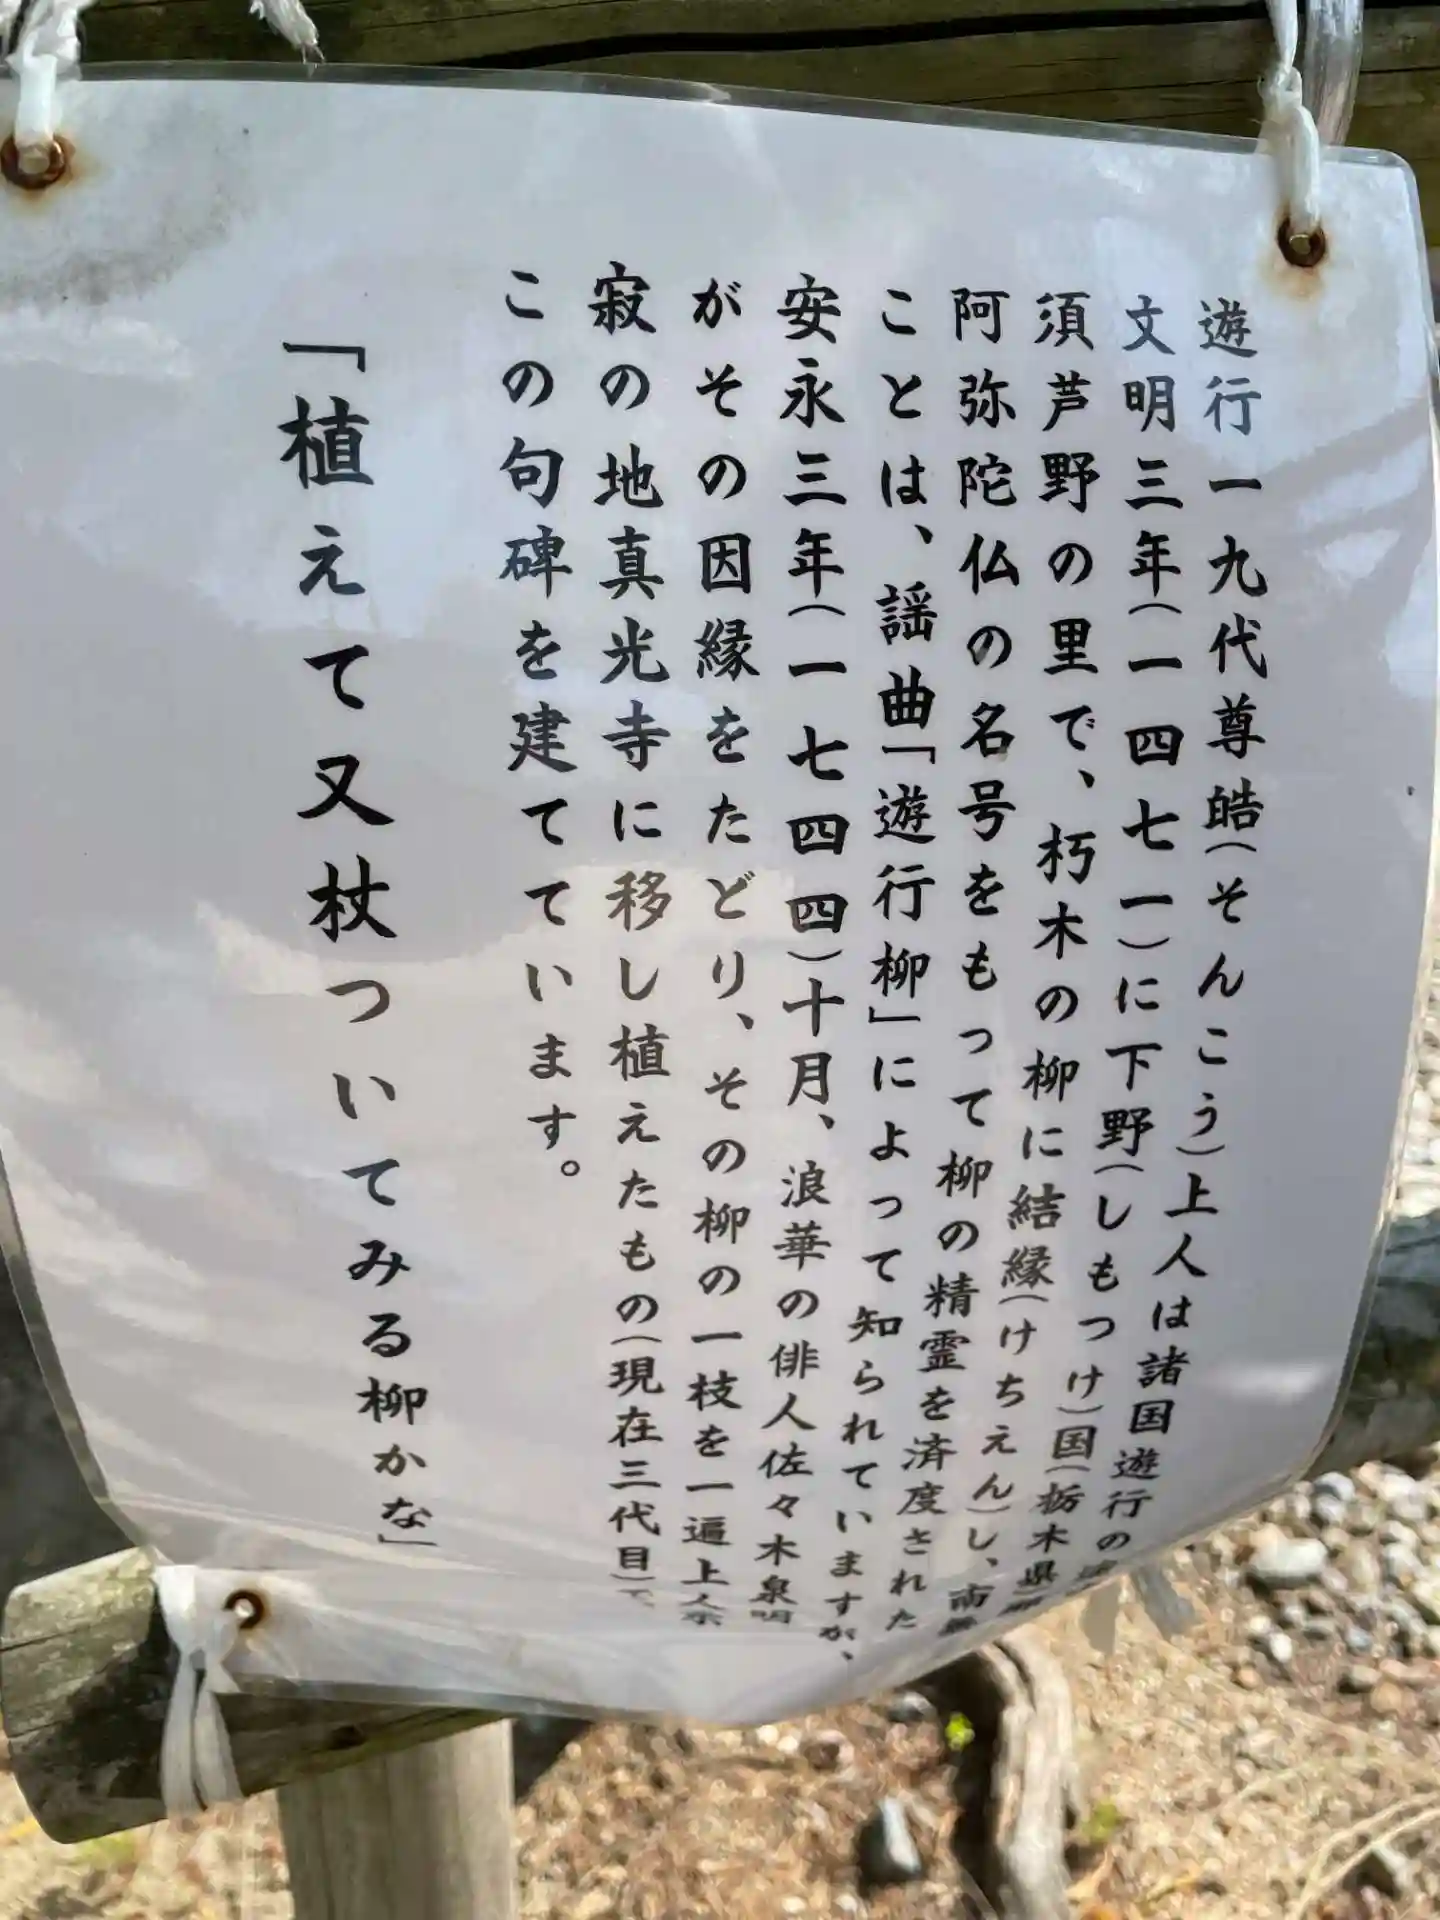 遊行一九代尊皓(そんこう)上人は諸国遊行の
文明三年(一四七一)に下野(しもつけ)国(栃木県
須芦野の里で、朽木の柳に結縁(けちえん)し、南無
阿弥陀仏の名号をもって柳の精霊を済度された
ことは、謡曲「遊行柳」によって知られていますが、
安永三年(一七四四)十月、浪華の俳人佐々木泉明
がその因縁をたどり、その柳の一枝を一遍上人
寂の地真光寺に移し植えたもの(現在三代目)で、
この句碑を建てています。
「植えて又杖ついてみる柳かな」